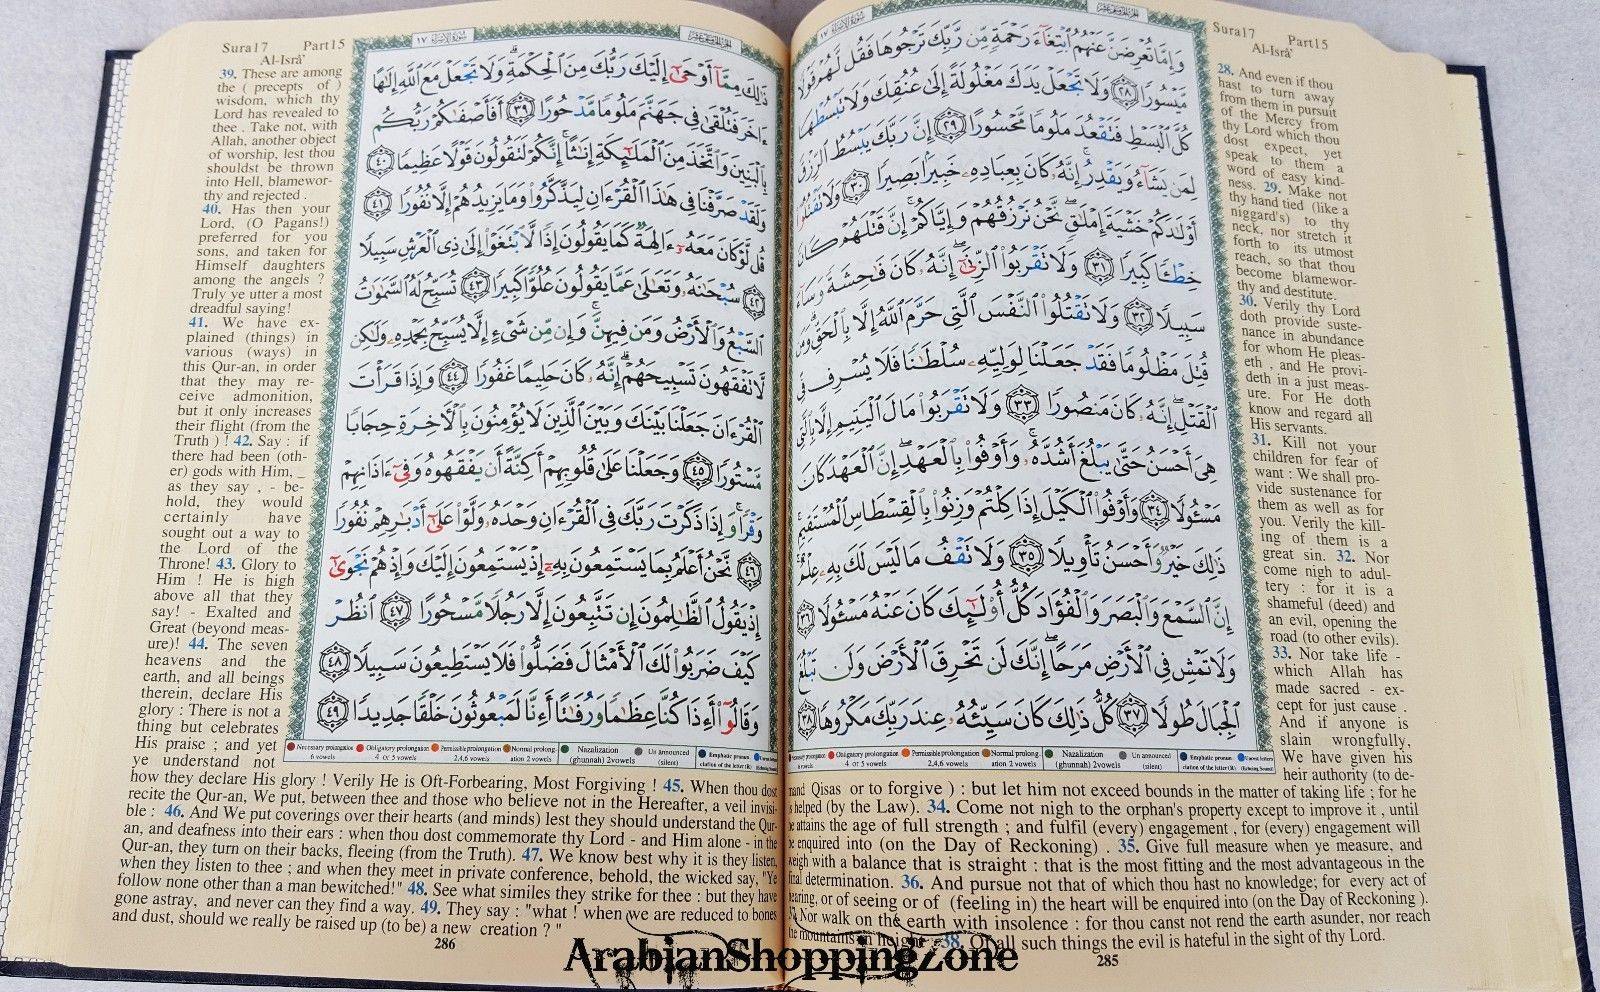 Sura17 Part15
Al-Isrâ'
سورة الإسراء ١٧
وَإِمَّا تُعْرِضَنَّ عَنْهُمُ ٱبْتِغَآءَ رَحْمَةٍ مِّن رَّبِّكَ تَرْجُوهَا فَقُل لَّهُمْ قَوْلًا
مَّيْسُورًا ٢٨ وَلَا تَجْعَلْ يَدَكَ مَغْلُولَةً إِلَىٰ عُنُقِكَ وَلَا تَبْسُطْهَا
كُلَّ ٱلْبَسْطِ فَتَقْعُدَ مَلُومًا مَّحْسُورًا ٢٩ إِنَّ رَبَّكَ يَبْسُطُ ٱلرِّزْقَ
لِمَن يَشَآءُ وَيَقْدِرُ إِنَّهُۥ كَانَ بِعِبَادِهِۦ خَبِيرًۢا بَصِيرًا ٣٠ وَلَا تَقْتُلُوٓا۟
أَوْلَٰدَكُمْ خَشْيَةَ إِمْلَٰقٍ نَّحْنُ نَرْزُقُهُمْ وَإِيَّاكُمْ إِنَّ قَتْلَهُمْ كَانَ
خِطْـًٔا كَبِيرًا ٣١ وَلَا تَقْرَبُوا۟ ٱلزِّنَىٰٓ إِنَّهُۥ كَانَ فَٰحِشَةً وَسَآءَ
سَبِيلًا ٣٢ وَلَا تَقْتُلُوا۟ ٱلنَّفْسَ ٱلَّتِى حَرَّمَ ٱللَّهُ إِلَّا بِٱلْحَقِّ وَمَن
قُتِلَ مَظْلُومًا فَقَدْ جَعَلْنَا لِوَلِيِّهِۦ سُلْطَٰنًا فَلَا يُسْرِف فِّى
ٱلْقَتْلِ إِنَّهُۥ كَانَ مَنصُورًا ٣٣ وَلَا تَقْرَبُوا۟ مَالَ ٱلْيَتِيمِ إِلَّا بِٱلَّتِى
هِىَ أَحْسَنُ حَتَّىٰ يَبْلُغَ أَشُدَّهُۥ وَأَوْفُوا۟ بِٱلْعَهْدِ إِنَّ ٱلْعَهْدَ كَانَ
مَسْـُٔولًا ٣٤ وَأَوْفُوا۟ ٱلْكَيْلَ إِذَا كِلْتُمْ وَزِنُوا۟ بِٱلْقِسْطَاسِ ٱلْمُسْتَقِيمِ
ذَٰلِكَ خَيْرٌ وَأَحْسَنُ تَأْوِيلًا ٣٥ وَلَا تَقْفُ مَا لَيْسَ لَكَ بِهِۦ عِلْمٌ
إِنَّ ٱلسَّمْعَ وَٱلْبَصَرَ وَٱلْفُؤَادَ كُلُّ أُو۟لَٰٓئِكَ كَانَ عَنْهُ مَسْـُٔولًا ٣٦
وَلَا تَمْشِ فِى ٱلْأَرْضِ مَرَحًا إِنَّكَ لَن تَخْرِقَ ٱلْأَرْضَ وَلَن تَبْلُغَ
ٱلْجِبَالَ طُولًا ٣٧ كُلُّ ذَٰلِكَ كَانَ سَيِّئُهُۥ عِندَ رَبِّكَ مَكْرُوهًا ٣٨
28. And even if thou
hast to turn away
from them in pursuit
of the Mercy from
thy Lord which thou
dost expect, yet
speak to them a
word of easy kind-
ness. 29. Make not
thy hand tied (like a
niggard's) to thy
neck, nor stretch it
forth to its utmost
reach, so that thou
become blamewor-
thy and destitute.
30. Verily thy Lord
doth provide suste-
nance in abundance
for whom He pleas-
eth , and He provi-
deth in a just meas-
ure. For He doth
know and regard all
His servants.
31. Kill not your
children for fear of
want : We shall pro-
vide sustenance for
them as well as for
you. Verily the kill-
ing of them is a
great sin. 32. Nor
come nigh to adul-
tery : for it is a
shameful (deed) and
an evil, opening the
road (to other evils).
33. Nor take life -
which Allah has
made sacred - ex-
cept for just cause .
And if anyone is
slain wrongfully,
We have given his
heir authority (to de-
mand Qisas or to forgive ) : but let him not exceed bounds in the matter of taking life ; for he
is helped (by the Law). 34. Come not nigh to the orphan's property except to improve it , until
he attains the age of full strength ; and fulfil (every) engagement , for (every) engagement will
be enquired into (on the Day of Reckoning) . 35. Give full measure when ye measure, and
weigh with a balance that is straight : that is the most fitting and the most advantageous in the
final determination. 36. And pursue not that of which thou hast no knowledge; for every act of
hearing, or of seeing or of (feeling in) the heart will be enquired into (on the Day of Reckoning ).
37. Nor walk on the earth with insolence : for thou canst not rend the earth asunder, nor reach
the mountains in height . 38. Of all such things the evil is hateful in the sight of thy Lord.
285
Sura17 Part15
Al-Isrâ'
سورة الإسراء ١٧
ذَٰلِكَ مِمَّآ أَوْحَىٰٓ إِلَيْكَ رَبُّكَ مِنَ ٱلْحِكْمَةِ وَلَا تَجْعَلْ مَعَ ٱللَّهِ إِلَٰهًا
ءَاخَرَ فَتُلْقَىٰ فِى جَهَنَّمَ مَلُومًا مَّدْحُورًا ٣٩ أَفَأَصْفَىٰكُمْ رَبُّكُم
بِٱلْبَنِينَ وَٱتَّخَذَ مِنَ ٱلْمَلَٰٓئِكَةِ إِنَٰثًا إِنَّكُمْ لَتَقُولُونَ قَوْلًا عَظِيمًا ٤٠
وَلَقَدْ صَرَّفْنَا فِى هَٰذَا ٱلْقُرْءَانِ لِيَذَّكَّرُوا۟ وَمَا يَزِيدُهُمْ إِلَّا نُفُورًا ٤١
قُل لَّوْ كَانَ مَعَهُۥٓ ءَالِهَةٌ كَمَا يَقُولُونَ إِذًا لَّٱبْتَغَوْا۟ إِلَىٰ ذِى ٱلْعَرْشِ سَبِيلًا
٤٢ سُبْحَٰنَهُۥ وَتَعَٰلَىٰ عَمَّا يَقُولُونَ عُلُوًّا كَبِيرًا ٤٣ تُسَبِّحُ لَهُ ٱلسَّمَٰوَٰتُ
ٱلسَّبْعُ وَٱلْأَرْضُ وَمَن فِيهِنَّ وَإِن مِّن شَىْءٍ إِلَّا يُسَبِّحُ بِحَمْدِهِۦ وَلَٰكِن
لَّا تَفْقَهُونَ تَسْبِيحَهُمْ إِنَّهُۥ كَانَ حَلِيمًا غَفُورًا ٤٤ وَإِذَا قَرَأْتَ
ٱلْقُرْءَانَ جَعَلْنَا بَيْنَكَ وَبَيْنَ ٱلَّذِينَ لَا يُؤْمِنُونَ بِٱلْأَخِرَةِ حِجَابًا
مَّسْتُورًا ٤٥ وَجَعَلْنَا عَلَىٰ قُلُوبِهِمْ أَكِنَّةً أَن يَفْقَهُوهُ وَفِىٓ ءَاذَانِهِمْ
وَقْرًا وَإِذَا ذَكَرْتَ رَبَّكَ فِى ٱلْقُرْءَانِ وَحْدَهُۥ وَلَّوْا۟ عَلَىٰٓ أَدْبَٰرِهِمْ نُفُورًا
٤٦ نَّحْنُ أَعْلَمُ بِمَا يَسْتَمِعُونَ بِهِۦٓ إِذْ يَسْتَمِعُونَ إِلَيْكَ وَإِذْ هُمْ نَجْوَىٰٓ
إِذْ يَقُولُ ٱلظَّٰلِمُونَ إِن تَتَّبِعُونَ إِلَّا رَجُلًا مَّسْحُورًا ٤٧ ٱنظُرْ
كَيْفَ ضَرَبُوا۟ لَكَ ٱلْأَمْثَالَ فَضَلُّوا۟ فَلَا يَسْتَطِيعُونَ سَبِيلًا ٤٨
وَقَالُوٓا۟ أَءِذَا كُنَّا عِظَٰمًا وَرُفَٰتًا أَءِنَّا لَمَبْعُوثُونَ خَلْقًا جَدِيدًا ٤٩
Necessary prolongation 6 vowels
Obligatory prolongation 4 or 5 vowels
Permissible prolongation 2,4,6 vowels
Normal prolongation 2 vowels
Nazalization (ghunnah) 2vowels
Un announced (silent)
39. These are among
the ( precepts of )
wisdom, which thy
Lord has revealed to
thee . Take not, with
Allah, another object
of worship, lest thou
shouldst be thrown
into Hell, blamewor-
thy and rejected .
40. Has then your
Lord, (O Pagans!)
preferred for you
sons, and taken for
Himself daughters
among the angels ?
Truly ye utter a most
dreadful saying!
41. We have ex-
plained (things) in
various (ways) in
this Qur-an, in order
that they may re-
ceive admonition,
but it only increases
their flight (from the
Truth ) ! 42. Say : if
there had been (oth-
er) gods with Him, _
as they say , - be-
hold, they would
certainly have
sought out a way to
the Lord of the
Throne! 43. Glory to
Him ! He is high
above all that they
say! - Exalted and
Great (beyond meas-
ure)! 44. The seven
heavens and the
earth, and all beings
therein, declare His
glory : There is not a
thing but celebrates
His praise ; and yet
ye understand not
how they declare His glory ! Verily He is Oft-Forbearing, Most Forgiving ! 45. When thou dost
recite the Qur-an, We put, between thee and those who believe not in the Hereafter, a veil invisi-
ble : 46. And We put coverings over their hearts (and minds) lest they should understand the Qur-
an, and deafness into their ears : when thou dost commemorate thy Lord - and Him alone - in the
Qur-an, they turn on their backs, fleeing (from the Truth). 47. We know best why it is they listen,
when they listen to thee ; and when they meet in private conference, behold, the wicked say, "Ye
follow none other than a man bewitched!" 48. See what similes they strike for thee : but they have
gone astray, and never can they find a way. 49. They say : "what ! when we are reduced to bones
and dust, should we really be raised up (to be) a new creation ? "
286
ArabianShoppingZone